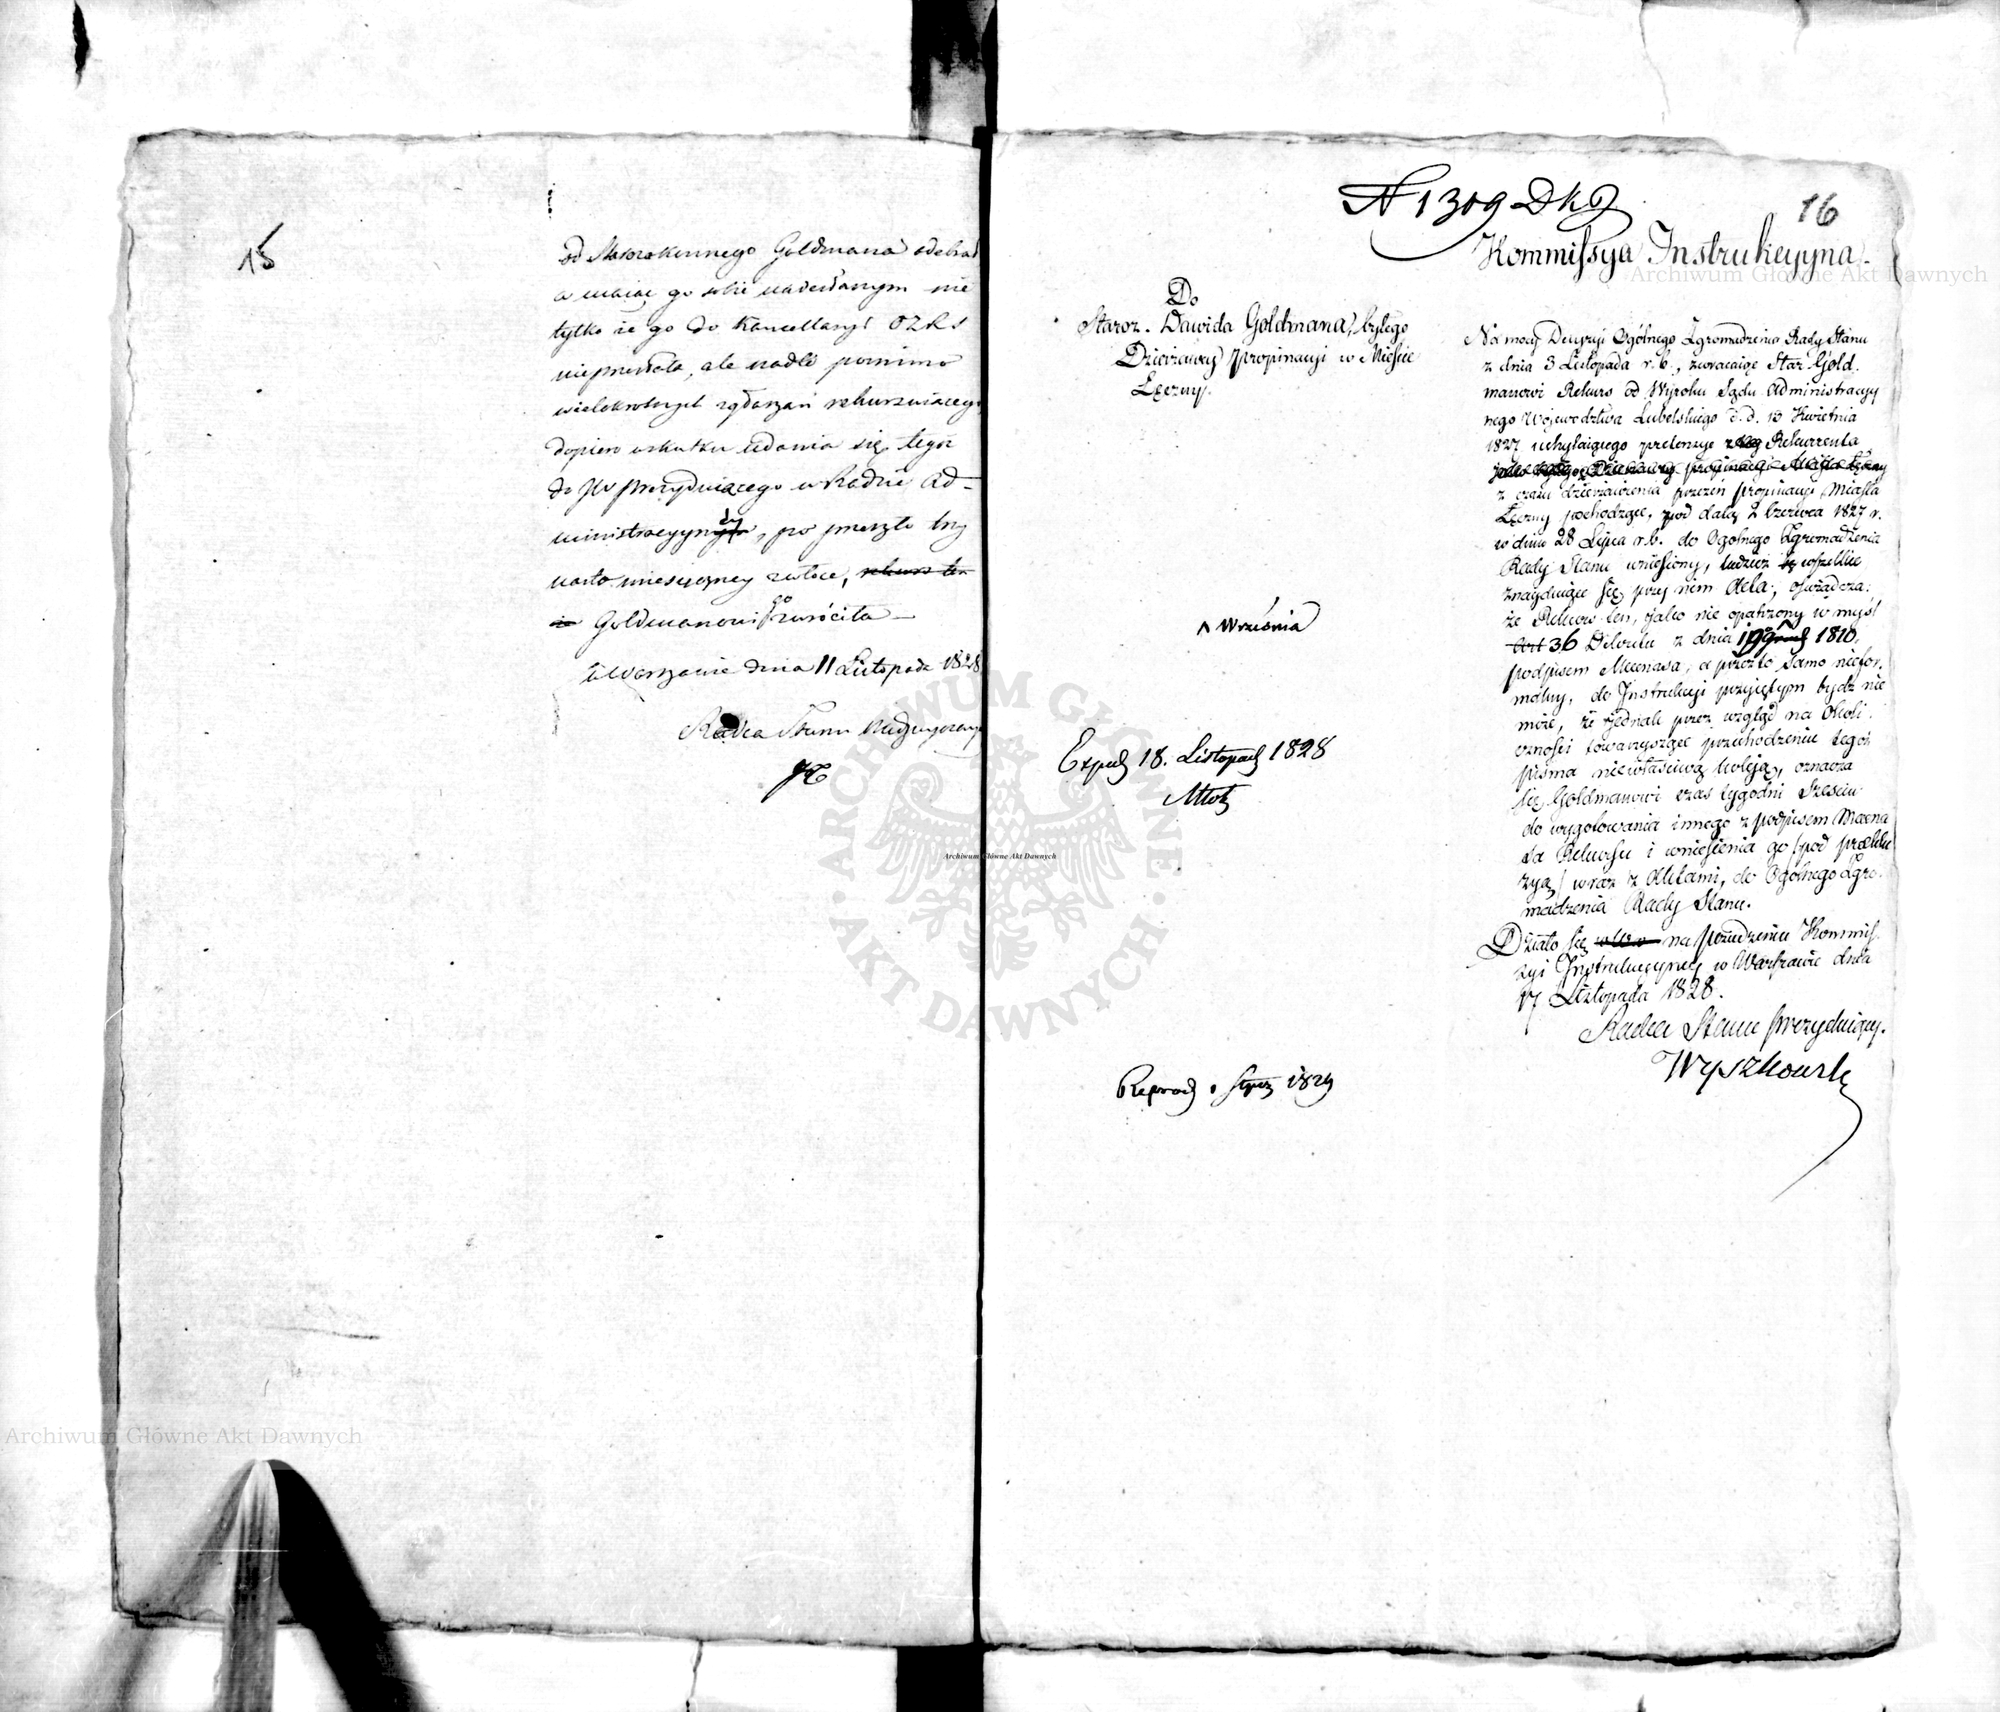 15
od Starozakonnego Goldmana odebrał
a maiąc go sobie nadesłanym nie
tylko że go do Kancellaryi OZRS
nieprzesłała, ale nadto pomimo
wielokrotnych zgłaszań rekurruiącego
dopiero w skutku udania się tegoż
do JW Prezyduiącego w Radzie Ad-
ministracyyney, po przeszło trzy
nasto miesięczney zwłoce, rekurs ten
Goldmanowi zwróciła
w Warszawie dnia 11 Listopada 1828
Radca Stanu Nadzwyczayny
N 1309 DKJ
16
Kommissya Instrukcyyna
Do
Staroz. Dawida Goldmana, byłego
Dzierżawcy Propinacyi w Mieście
Łęczny.
Na mocy Decyzyi Ogólnego Zgromadzenia Rady Stanu
z dnia 3 Listopada r.b., zwracaiąc Star. Gold.
manowi Rekurs od Wyroku Sądu Administracyy
nego Województwa Lubelskiego d.d. 13 Kwietnia
1827 uchylaiącego pretensye Rekurrenta
z czasu dzierżawienia przezeń propinacyi Miasta
Łęczny pochodzące, pod datą 2 Czerwca 1827 r.
w dniu 28 Lipca r.b. do Ogólnego Zgromadzenia
Rady Stanu wniesiony, tudzież wszelkie
znayduiące się przy nim Akta; oświadcza:
że Rekurs ten, jako nie opatrzony w myśl
Art 36 Dekretu z dnia 19 1810,
podpisem Mecenasa, a przeto samo niefor.
malny, do Instrukcyi przyiętym bydź nie
może, że jednak przez wzgląd na Okoli.
czności towarzyszące przechodzeniu tegoż
pisma niewłaściwą koleją, oznacza
się Goldmanowi czas tygodni Sześciu
do wygotowania innego z podpisem Mecena
sa Rekursu i wniesienia go (pod preklu
zyą) wraz z Aktami, do Ogólnego Zgro.
madzenia Rady Stanu.
Działo się na posiedzeniu Kommis.
syi Instrukcyyney w Warszawie dnia
17 Listopada 1828.
Radca Stanu prezyduiący.
Wyszkowski
Września
Exped 18. Listopad 1828
Reprod Stycz 1829
Archiwum Główne Akt Dawnych
ARCHIWUM GŁÓWNE · AKT DAWNYCH ·
Archiwum Główne Akt Dawnych
Archiwum Główne Akt Dawnych